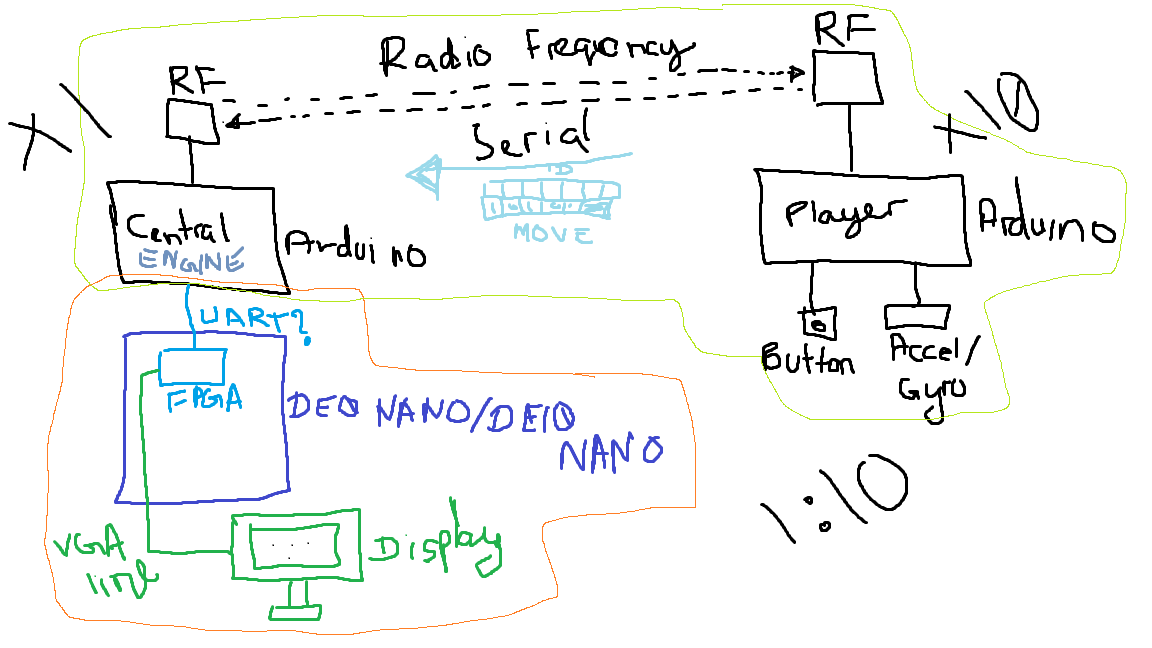 RF
Radio Freqency
RF
x 1
x 10
Serial
ID
MOVE
Central
ENGINE
Arduino
Player
Arduino
UART?
FPGA
Button
Accel/
Gyro
DE0 NANO/DE10
NANO
1:10
VGA
line
Display